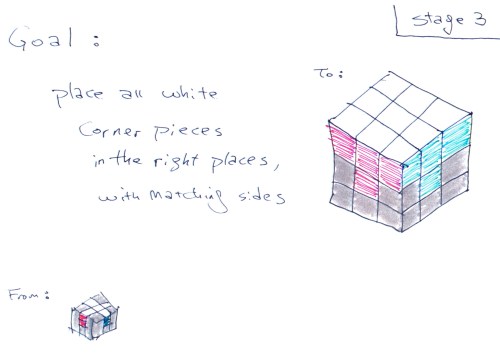 stage 3
Goal:
place all white
corner pieces
in the right places,
with matching sides
To:
From: